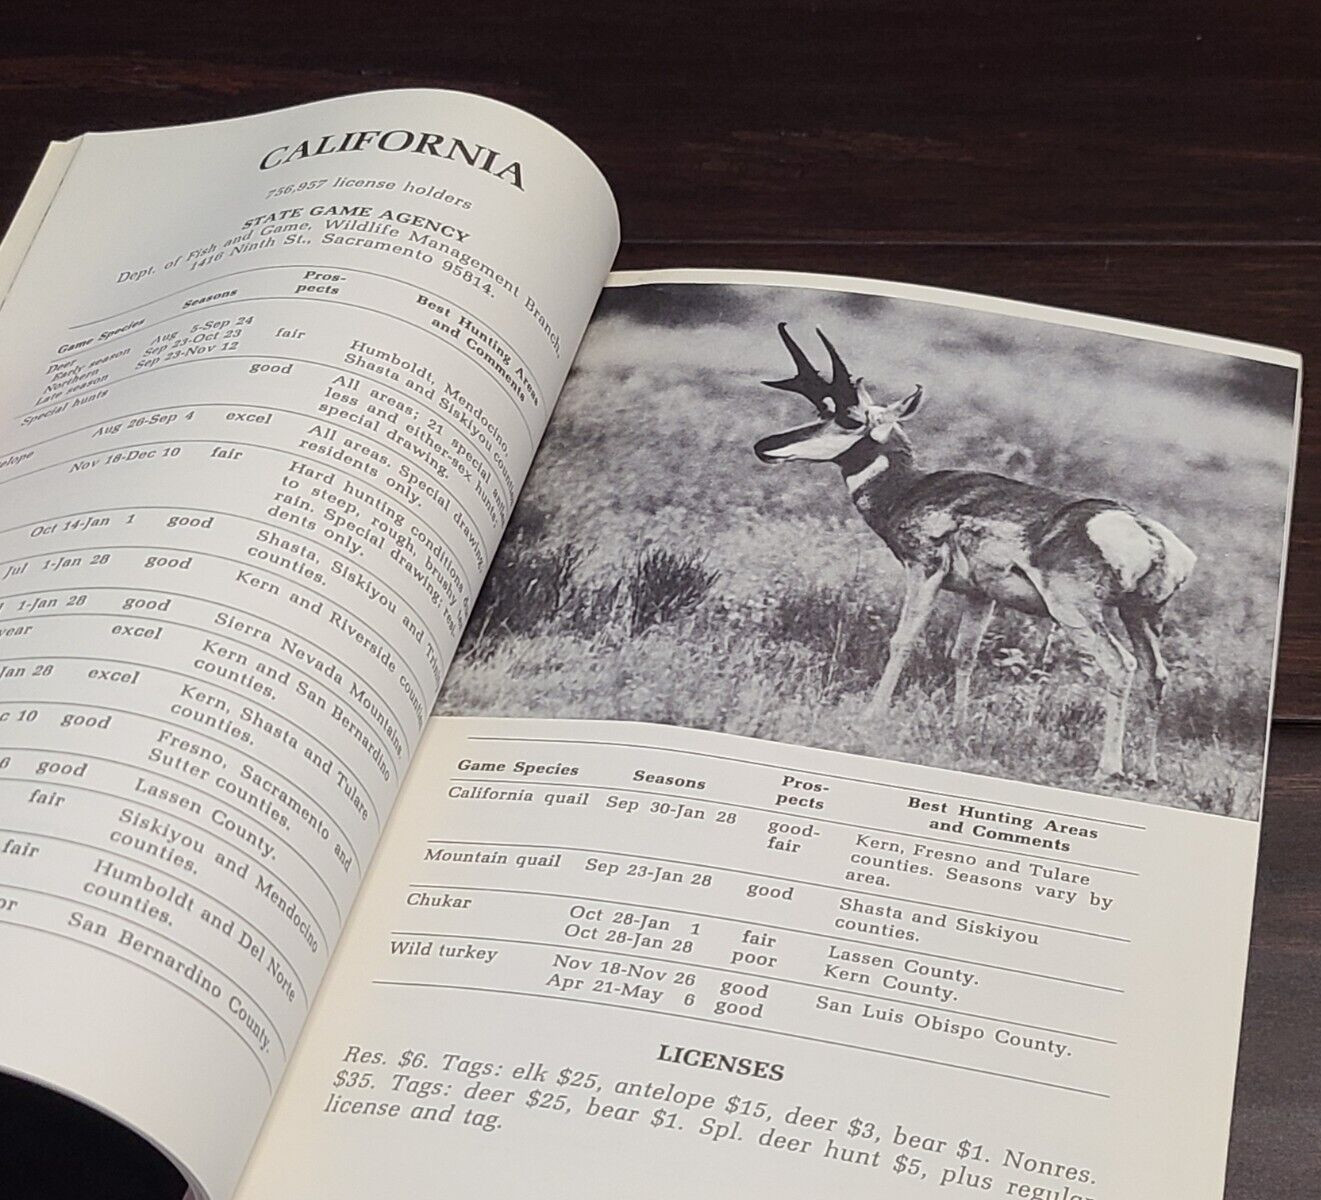 CALIFORNIA
756,957 license holders
STATE GAME AGENCY
Dept. of Fish and Game, Wildlife Management Branch,
1416 Ninth St., Sacramento 95814.
Game Species Seasons Pros-pects Best Hunting Areas and Comments
Deer
Early season Aug 5-Sep 24
Northern Sep 23-Oct 23 fair Humboldt, Mendocino,
Late season Sep 23-Nov 12 Shasta and Siskiyou counties
Special hunts good All areas; 21 special
less and either-sex hunts;
special drawing.
elope Aug 26-Sep 4 excel All areas. Special drawing,
residents only.
Nov 18-Dec 10 fair Hard hunting conditions
to steep, rough, brushy
rain. Special drawing;
dents only.
Oct 14-Jan 1 good Shasta, Siskiyou and
counties.
Jul 1-Jan 28 good Kern and Riverside counties
1-Jan 28 good Sierra Nevada Mountains.
year excel Kern and San Bernardino
counties.
Jan 28 excel Kern, Shasta and Tulare
counties.
c 10 good Fresno, Sacramento and
Sutter counties.
6 good Lassen County.
fair Siskiyou and Mendocino
counties.
fair Humboldt and Del Norte
counties.
or San Bernardino County.
Game Species Seasons Pros-pects Best Hunting Areas and Comments
California quail Sep 30-Jan 28 good-fair Kern, Fresno and Tulare
counties. Seasons vary by
area.
Mountain quail Sep 23-Jan 28 good Shasta and Siskiyou
counties.
Chukar Oct 28-Jan 1 fair Lassen County.
Oct 28-Jan 28 poor Kern County.
Wild turkey Nov 18-Nov 26 good San Luis Obispo County.
Apr 21-May 6 good
LICENSES
Res. $6. Tags: elk $25, antelope $15, deer $3, bear $1. Nonres.
$35. Tags: deer $25, bear $1. Spl. deer hunt $5, plus regular
license and tag.